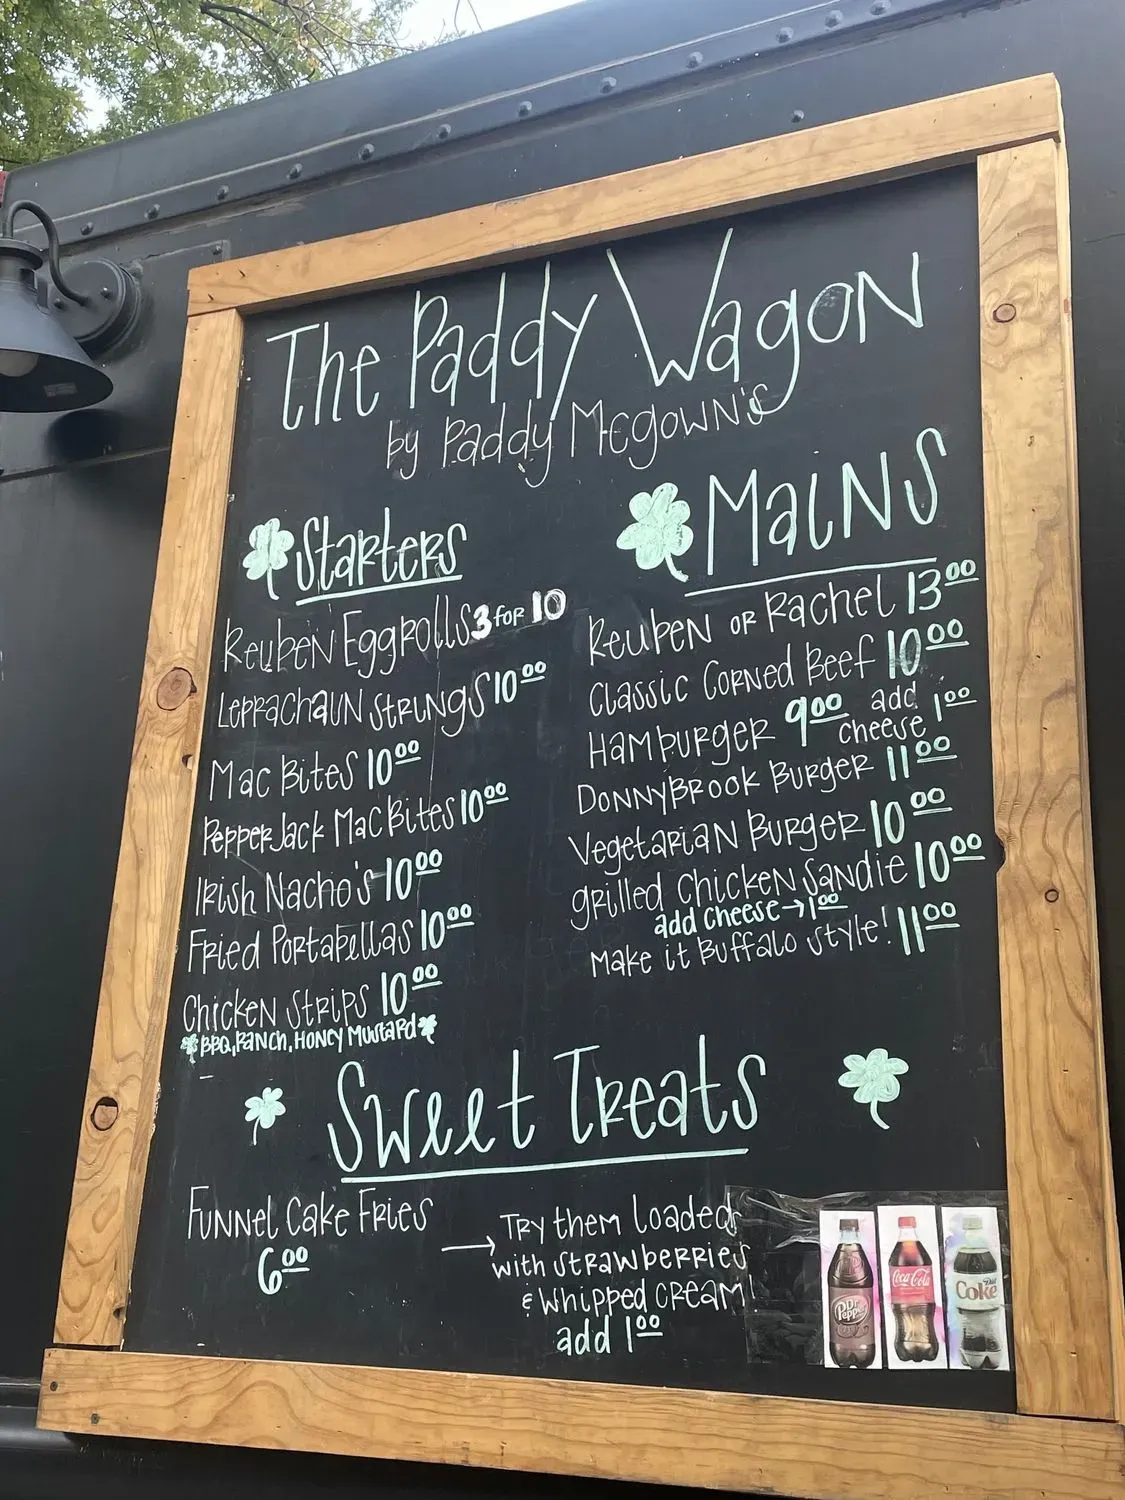 The Paddy Wagon
by Paddy McGown's
Starters
Reuben Eggrolls 3 for 10
Leprachaun Strings 10.00
Mac Bites 10.00
Pepper Jack Mac Bites 10.00
Irish Nacho's 10.00
Fried Portabellas 10.00
Chicken Strips 10.00
BBQ, Ranch, Honey Mustard
Mains
Reuben or Rachel 13.00
Classic Corned Beef 10.00
Hamburger 9.00 add cheese 1.00
Donnybrook Burger 11.00
Vegetarian Burger 10.00
Grilled Chicken Sandie 10.00
add cheese → 1.00
Make it Buffalo style! 11.00
Sweet Treats
Funnel Cake Fries
6.00
→ Try them loaded
with strawberries
& whipped cream!
add 1.00
Dr Pepper
Coca-Cola
Diet Coke